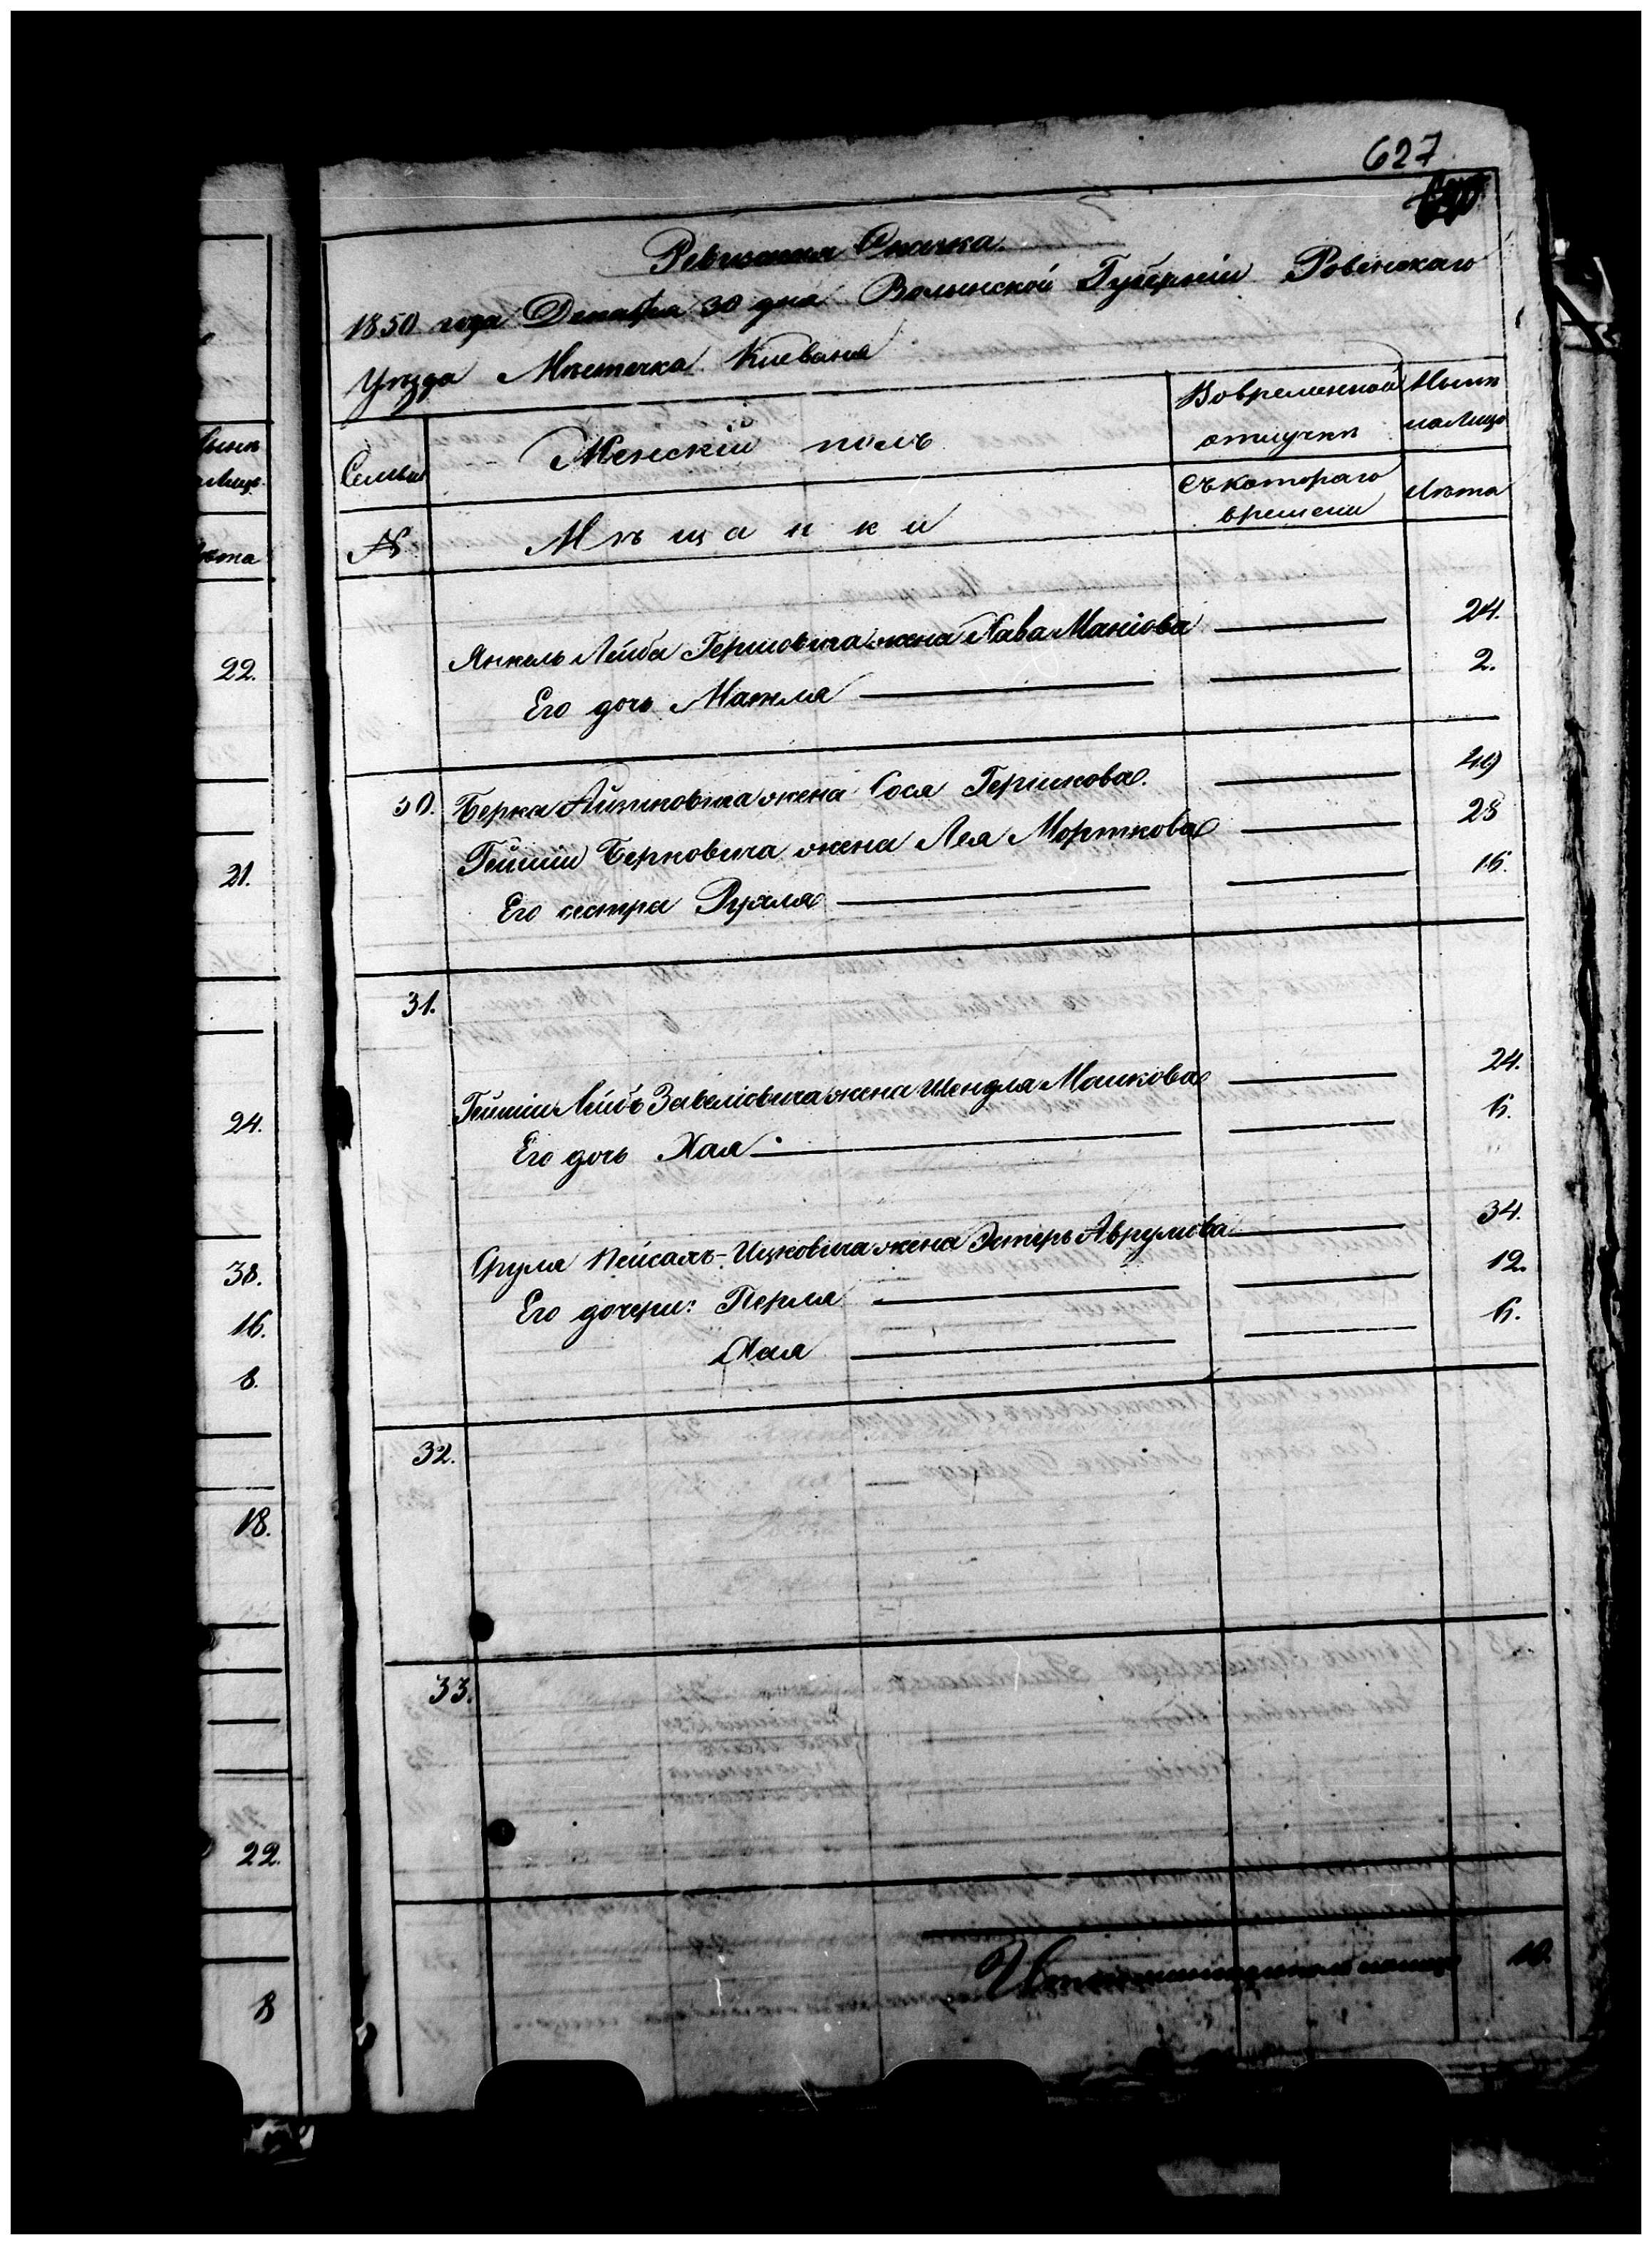 627
Ревизская Сказка
1850 года Декабря 30 дня Волынской Губерніи Ровенскаго
Уѣзда Мѣстечка Клевана
Семьи
Женскій полъ
Во временной
отлучкѣ
Нынѣ
на лицо
N
Мѣщанки
Съ котораго
времени
Лѣта
Янкель Лейба Гершовича жена Хава Маніова 24.
Его дочь Матля 2.
30. Берка Айзиковича жена Сося Гершкова 49
Гейши Берковича жена Лея Морткова 28
Его сестра Рухля 16.
31.
Гейши Лейбъ Завеліовича жена Шендля Машкова 24.
Его дочь Хая 6.
Сруля Пейсахъ-Ицковича жена Эстеръ Аврумова 34.
Его дочери: Перля 12.
Хая 6.
32.
33.
10.
22.
21.
24.
38.
16.
8.
18.
22.
8